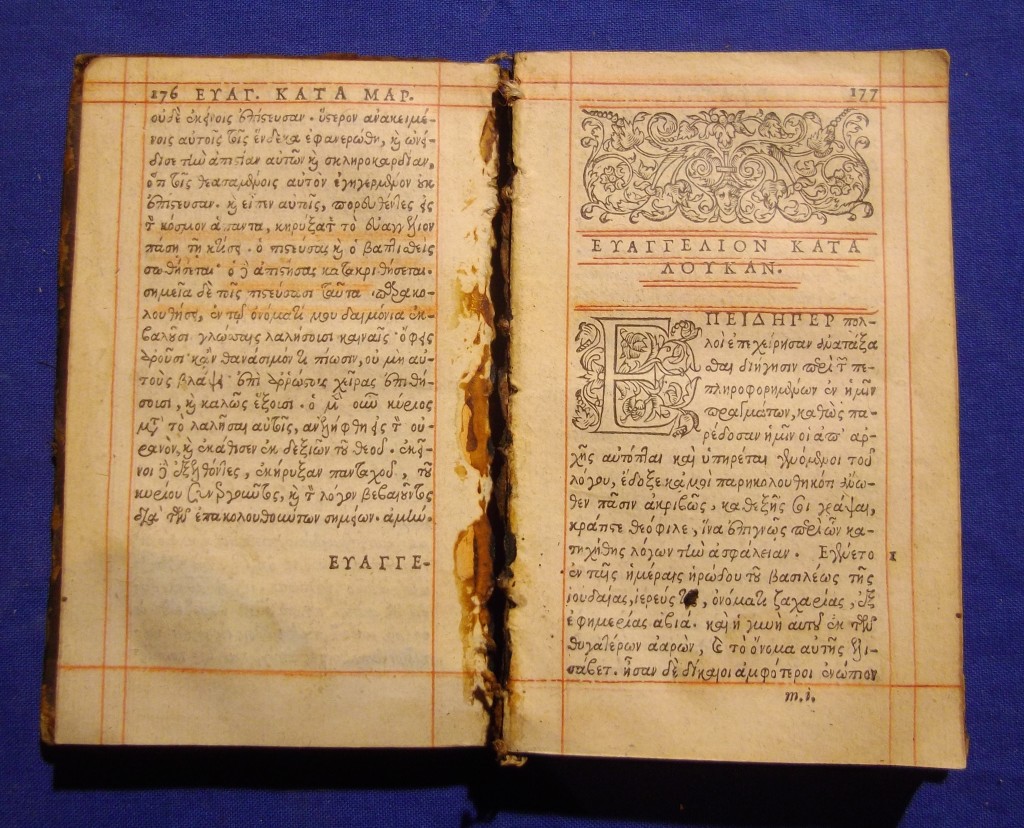 176 ΕΥΑΓ. ΚΑΤΑ ΜΑΡ.
οὐδὲ ἐκείνοις ἐπίστευσαν. ὕστερον ἀνακειμέ-
νοις αὐτοῖς τοῖς ἕνδεκα ἐφανερώθη, καὶ ὠνεί-
δισε τὴν ἀπιστίαν αὐτῶν καὶ σκληροκαρδίαν,
ὅτι τοῖς θεασαμένοις αὐτὸν ἐγηγερμένον οὐκ
ἐπίστευσαν. καὶ εἶπεν αὐτοῖς, πορευθέντες εἰς
τὸν κόσμον ἅπαντα, κηρύξατε τὸ εὐαγγέλιον
πάσῃ τῇ κτίσει. ὁ πιστεύσας καὶ ὁ βαπτισθεὶς
σωθήσεται· ὁ δὲ ἀπιστήσας κατακριθήσεται.
σημεῖα δὲ τοῖς πιστεύσασι ταῦτα παρακο-
λουθήσει, ἐν τῷ ὀνόματί μου δαιμόνια ἐκ-
βαλοῦσι· γλώσσαις λαλήσουσι καιναῖς· ὄφεις
ἀροῦσι· κἂν θανάσιμόν τι πίωσιν, οὐ μὴ αὐ-
τοὺς βλάψει· ἐπὶ ἀρρώστους χεῖρας ἐπιθή-
σουσι, καὶ καλῶς ἕξουσι. ὁ μὲν οὖν κύριος
μετὰ τὸ λαλῆσαι αὐτοῖς, ἀνελήφθη εἰς τὸν οὐ-
ρανὸν, καὶ ἐκάθισεν ἐκ δεξιῶν τοῦ θεοῦ. ἐκεῖ-
νοι δὲ ἐξελθόντες, ἐκήρυξαν πανταχοῦ, τοῦ
κυρίου συνεργοῦντος, καὶ τὸν λόγον βεβαιοῦντος
διὰ τῶν ἐπακολουθούντων σημείων. ἀμήν.
ΕΥΑΓΓΕ-
177
ΕΥΑΓΓΕΛΙΟΝ ΚΑΤΑ
ΛΟΥΚΑΝ.
ΕΠΕΙΔΗΓΕΡ πολ-
λοὶ ἐπεχείρησαν ἀνατάξα
σθαι διήγησιν περὶ τῶν πε-
πληροφορημένων ἐν ἡμῖν
πραγμάτων, καθὼς πα-
ρέδοσαν ἡμῖν οἱ ἀπ' ἀρ-
χῆς αὐτόπται καὶ ὑπηρέται γενόμενοι τοῦ
λόγου, ἔδοξε κᾀμοὶ παρηκολουθηκότι ἄνω-
θεν πᾶσιν ἀκριβῶς, καθεξῆς σοι γράψαι,
κράτιστε θεόφιλε, ἵνα ἐπιγνῷς περὶ ὧν κα-
τηχήθης λόγων τὴν ἀσφάλειαν. Εγένετο 1
ἐν ταῖς ἡμέραις ἡρώδου τοῦ βασιλέως τῆς
ἰουδαίας, ἱερεύς τις, ὀνόματι ζαχαρίας, ἐξ
ἐφημερίας ἀβιά. καὶ ἡ γυνὴ αὐτοῦ ἐκ τῶν
θυγατέρων ἀαρών, καὶ τὸ ὄνομα αὐτῆς ἐλι-
σάβετ. ἦσαν δὲ δίκαιοι ἀμφότεροι ἐνώπιον
m.i.